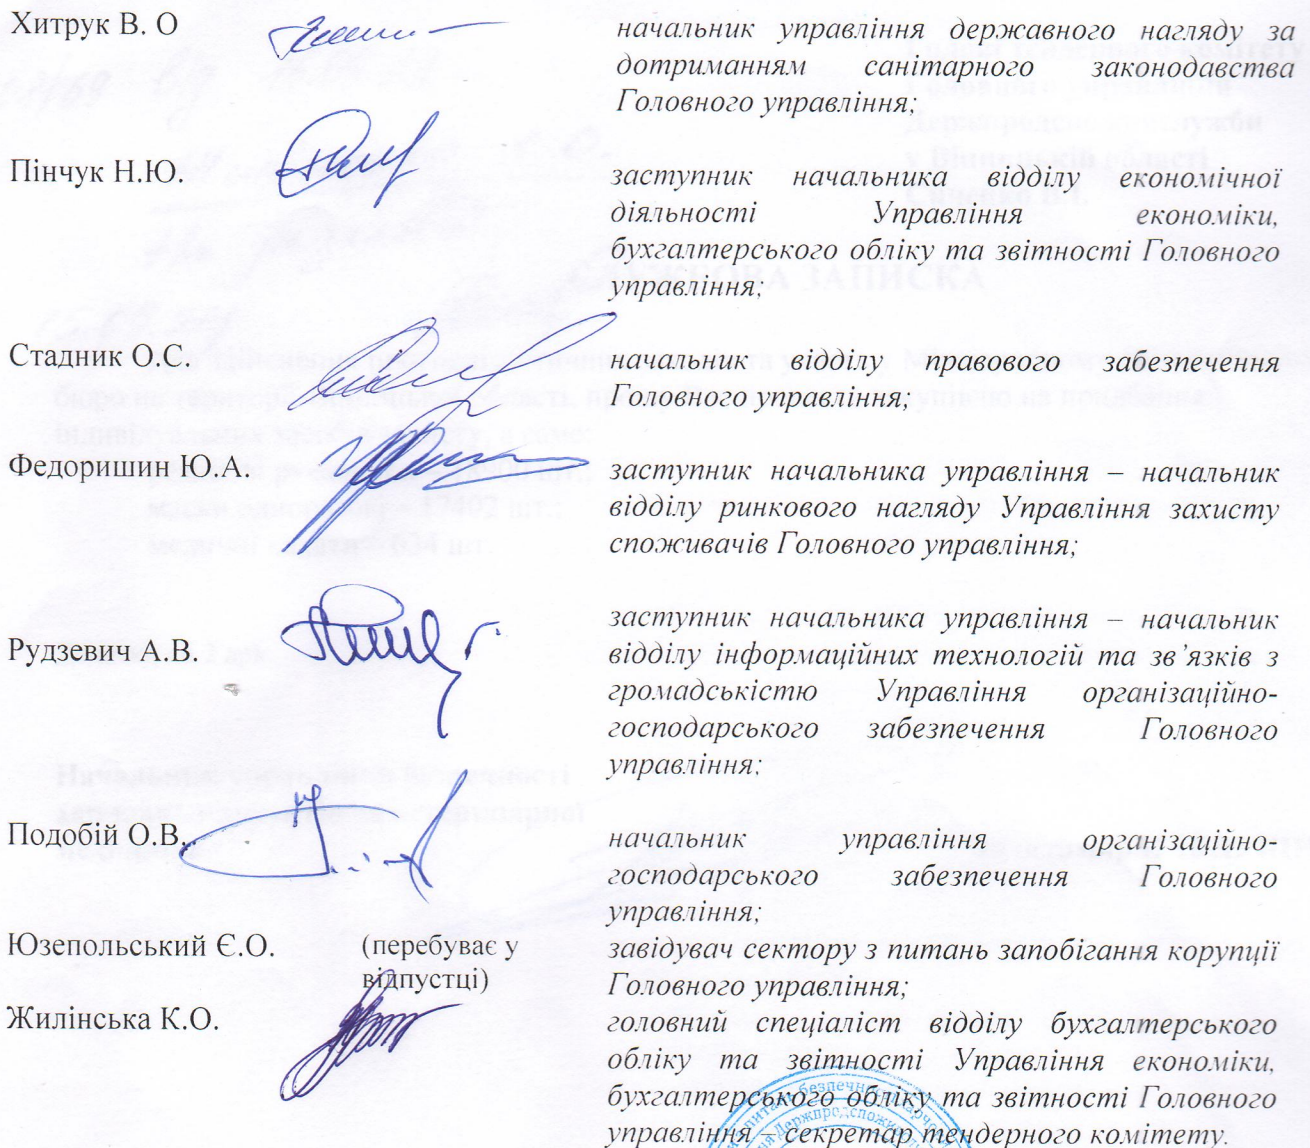 Хитрук В. О
начальник управління державного нагляду за
дотриманням санітарного законодавства
Головного управління;
Пінчук Н.Ю.
заступник начальника відділу економічної
діяльності Управління економіки,
бухгалтерського обліку та звітності Головного
управління;
Стадник О.С.
начальник відділу правового забезпечення
Головного управління;
Федоришин Ю.А.
заступник начальника управління – начальник
відділу ринкового нагляду Управління захисту
споживачів Головного управління;
Рудзевич А.В.
заступник начальника управління – начальник
відділу інформаційних технологій та зв’язків з
громадськістю Управління організаційно-
господарського забезпечення Головного
управління;
Подобій О.В.
начальник управління організаційно-
господарського забезпечення Головного
управління;
Юзепольський Є.О.
(перебуває у
відпустці)
завідувач сектору з питань запобігання корупції
Головного управління;
Жилінська К.О.
головний спеціаліст відділу бухгалтерського
обліку та звітності Управління економіки,
бухгалтерського обліку та звітності Головного
управління – секретар тендерного комітету.